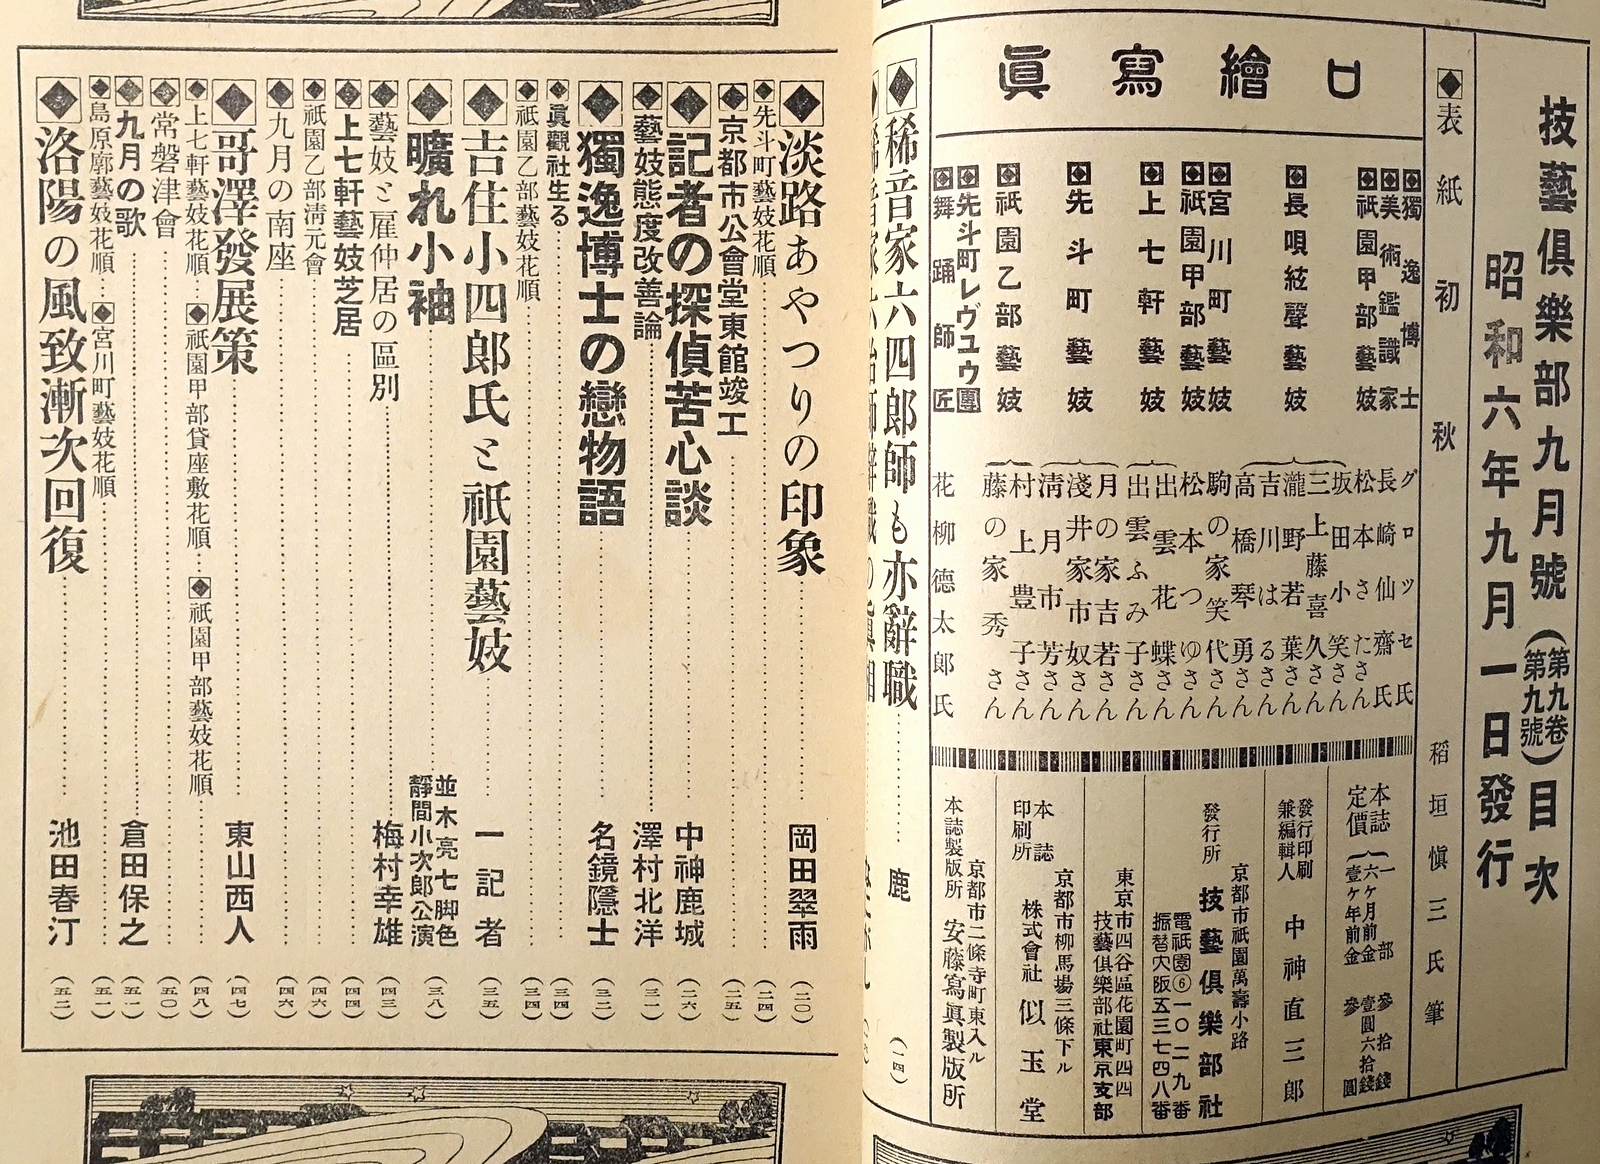 技藝倶樂部九月號(第九卷第九號)目次
昭和六年九月一日發行
◆表紙 初秋 稻垣愼三氏筆
口繪寫眞
獨逸博士 グロツセ氏
美術鑑識家 長崎仙齋氏
祇園甲部藝妓 松本さたさん
坂田小笑さん
長唄絃聲藝妓 三上藤喜久さん
瀧野若葉さん
吉川はるさん
高橋琴勇さん
宮川町藝妓 駒の家笑代さん
祇園甲部藝妓 松本つゆさん
上七軒藝妓 出雲花蝶さん
出雲ふみ子さん
先斗町藝妓 月の家吉若さん
淺井家市奴さん
清月市芳さん
祇園乙部藝妓 村上豊子さん
藤の家秀さん
先斗町レヴユウ團
舞踊師匠 花柳德太郎氏
本誌定價
一部 參拾錢
六ケ月前金 壹圓六拾錢
壹ケ年前金 參圓
發行印刷兼編輯人 中神直三郎
京都市祇園萬壽小路
發行所 技藝倶樂部社
電祇園⑥一〇二九番
振替大阪五三七四八番
東京市四谷區花園町四四
技藝倶樂部社東京支部
京都市柳馬場三條下ル
本誌印刷所 株式會社 似玉堂
京都市二條寺町東入ル
本誌製版所 安藤寫眞製版所
◆稀音家六四郎師も亦辭職 鹿 (一四)
◆淡路あやつりの印象 岡田翠雨 (二〇)
◆先斗町藝妓花順 (二四)
◆京都市公會堂東館竣工 (二五)
◆記者の探偵苦心談 中神鹿城 (二六)
◆藝妓態度改善論 澤村北洋 (三一)
◆獨逸博士の戀物語 名鏡隱士 (三二)
◆眞觀社生る (三四)
◆祇園乙部藝妓花順 (三四)
◆吉住小四郎氏と祇園藝妓 一記者 (三五)
◆曠れ小袖 並木亮七脚色 靜間小次郎公演 (三八)
◆藝妓と雇仲居の區別 梅村幸雄 (四三)
◆上七軒藝妓芝居 (四四)
◆祇園乙部清元會 (四六)
◆九月の南座 (四六)
◆哥澤發展策 東山西人 (四七)
◆上七軒藝妓花順 ◆祇園甲部貸座敷花順 ◆祇園甲部藝妓花順 (四八)
◆常磐津會 (五〇)
◆九月の歌 倉田保之 (五一)
◆島原廓藝妓花順 ◆宮川町藝妓花順 (五一)
◆洛陽の風致漸次回復 池田春汀 (五二)